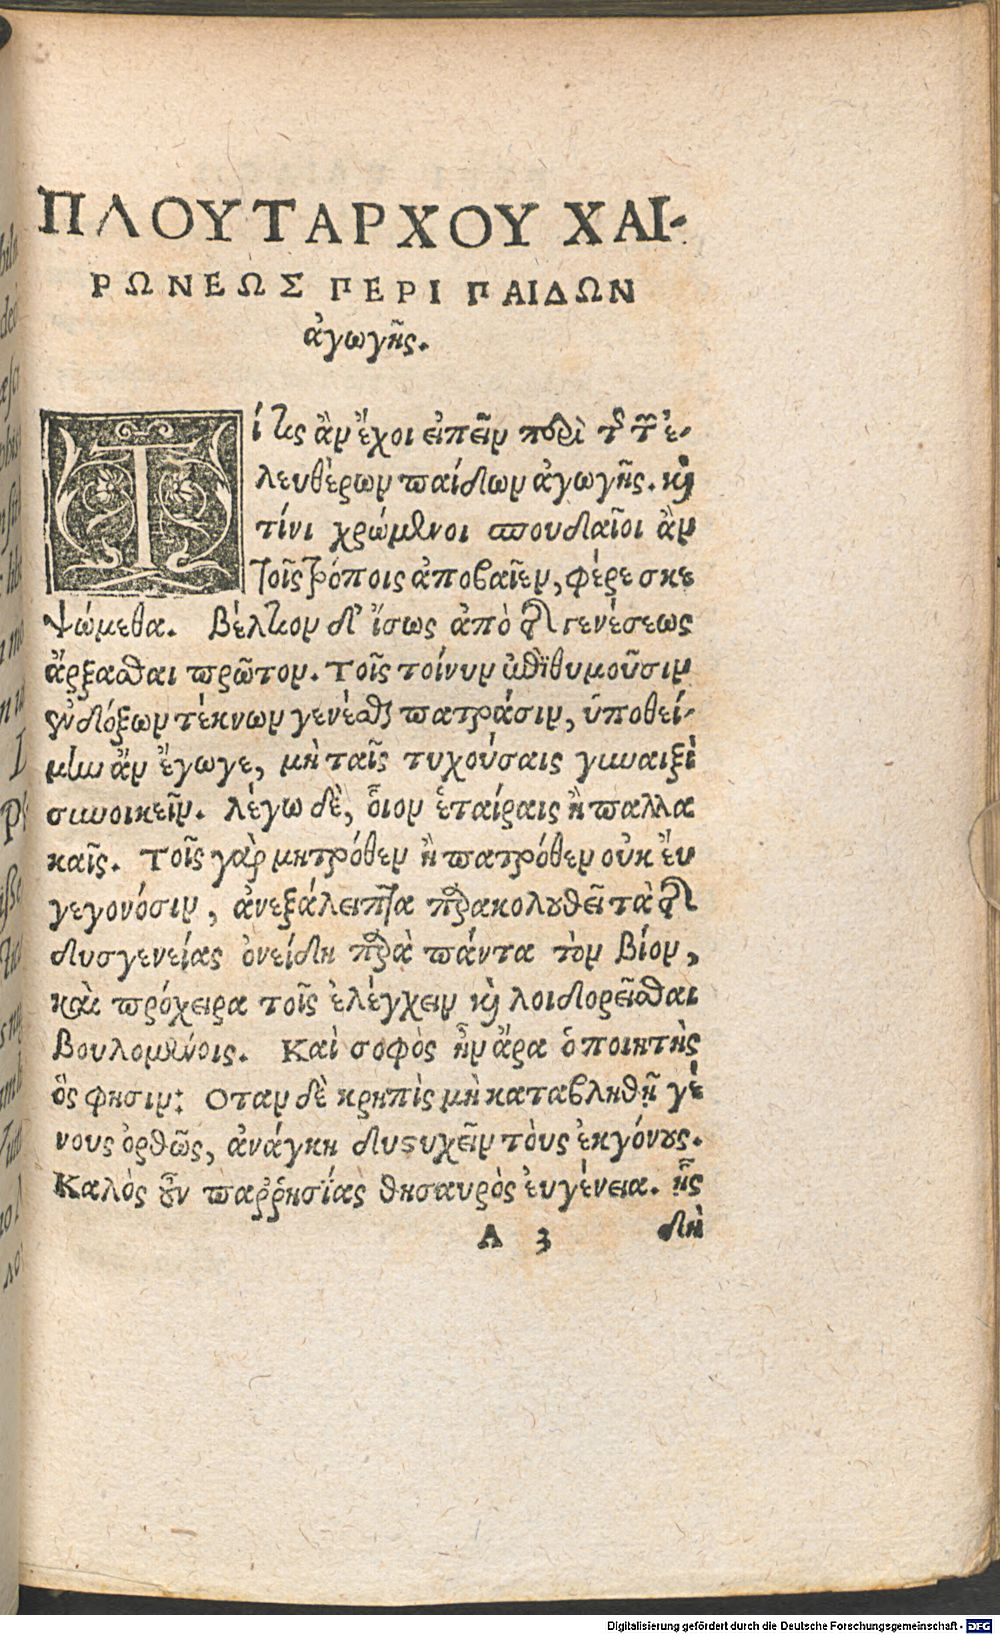 ΠΛΟΥΤΑΡΧΟΥ ΧΑΙ-
ΡΩΝΕΩΣ ΠΕΡΙ ΠΑΙΔΩΝ
ἀγωγῆς.
Τί τις ἂν ἔχοι εἰπεῖν περὶ τῆς τῶν ἐ-
λευθέρων παίδων ἀγωγῆς. καὶ
τίνι χρώμενοι σπουδαῖοι ἂν
τοῖς τρόποις ἀποβαῖεν, φέρε σκε
ψώμεθα. Βέλτιον δ' ἴσως ἀπὸ τῆς γενέσεως
ἄρξασθαι πρῶτον. Τοῖς τοίνυν ἐπιθυμοῦσιν
ἐνδόξων τέκνων γενέσθαι πατράσιν, ὑποθεί-
μην ἂν ἔγωγε, μὴ ταῖς τυχούσαις γυναιξὶ
συνοικεῖν. λέγω δὲ, οἷον ἑταίραις ἢ παλλα
καῖς. Τοῖς γὰρ μητρόθεν ἢ πατρόθεν οὐκ ἔυ
γεγονόσιν, ἀνεξάλειπτα παρακολουθεῖ τὰ τῆς
δυσγενείας ὀνείδη παρὰ πάντα τὸν βίον,
καὶ πρόχειρα τοῖς ἐλέγχειν καὶ λοιδορεῖσθαι
βουλομένοις. Καὶ σοφὸς ἦν ἄρα ὁ ποιητὴς
ὅς φησιν: Οταν δὲ κρηπὶς μὴ καταβληθῇ γέ
νους ὀρθῶς, ἀνάγκη δυστυχεῖν τοὺς ἐκγόνους.
Καλὸς οὖν παῤῥησίας θησαυρὸς ἐυγένεια. ἧς
Α 3 δὴ
Digitalisierung gefördert durch die Deutsche Forschungsgemeinschaft - DFG